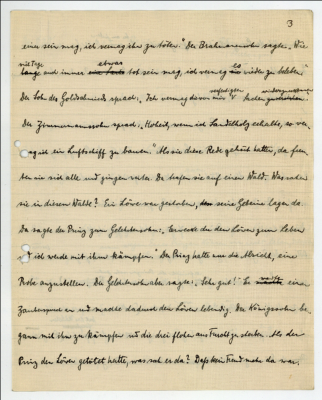 3
einer sein mag, ich vermag ihn zu töten." Der Brahmanensohn sagte: „Wie
viel Tage etwas
lange auch immer tot sein mag, ich vermag es wieder zu beleben."
Der Sohn des Goldschmieds sprach: „Ich vermag
Der Zimmermannssohn sprach: „Hoheit, wenn ich Sandelholz erhalte, so ver-
mag ich ein Luftschiff zu bauen." Als sie diese Rede gehört hatten, da freu-
ten sie sich alle und gingen weiter. Da trafen sie auf einen Wald. Was sahen
sie in diesem Walde? Ein Löwe war gestorben, seine Gebeine lagen da.
Da sagte der Prinz zum Gelehrtensohn: „Erwecke du den Löwen zum Leben
und ich werde mit ihm kämpfen." Der Prinz hatte nur die Absicht, eine
Probe anzustellen. Der Gelehrtensohn aber sagte: „Sehr gut!" Er warf einen
Zauberspruch und machte dadurch den Löwen lebendig. Der Königssohn be-
gann mit ihm zu kämpfen und die drei flohen aus Furcht zu sterben. Als der
Prinz den Löwen getötet hatte, was sah er da? Daß kein Freund mehr da war.